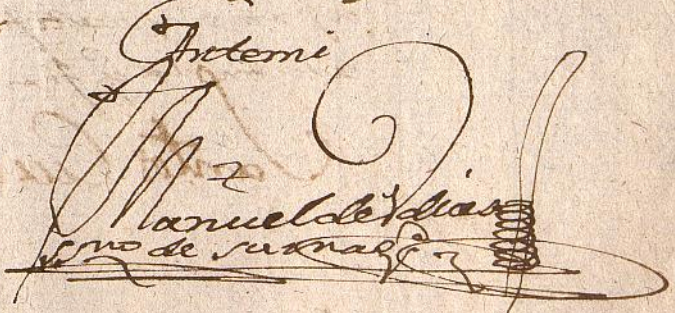 Ante mi
Manuel de Vdias
Ssno de su mag^d